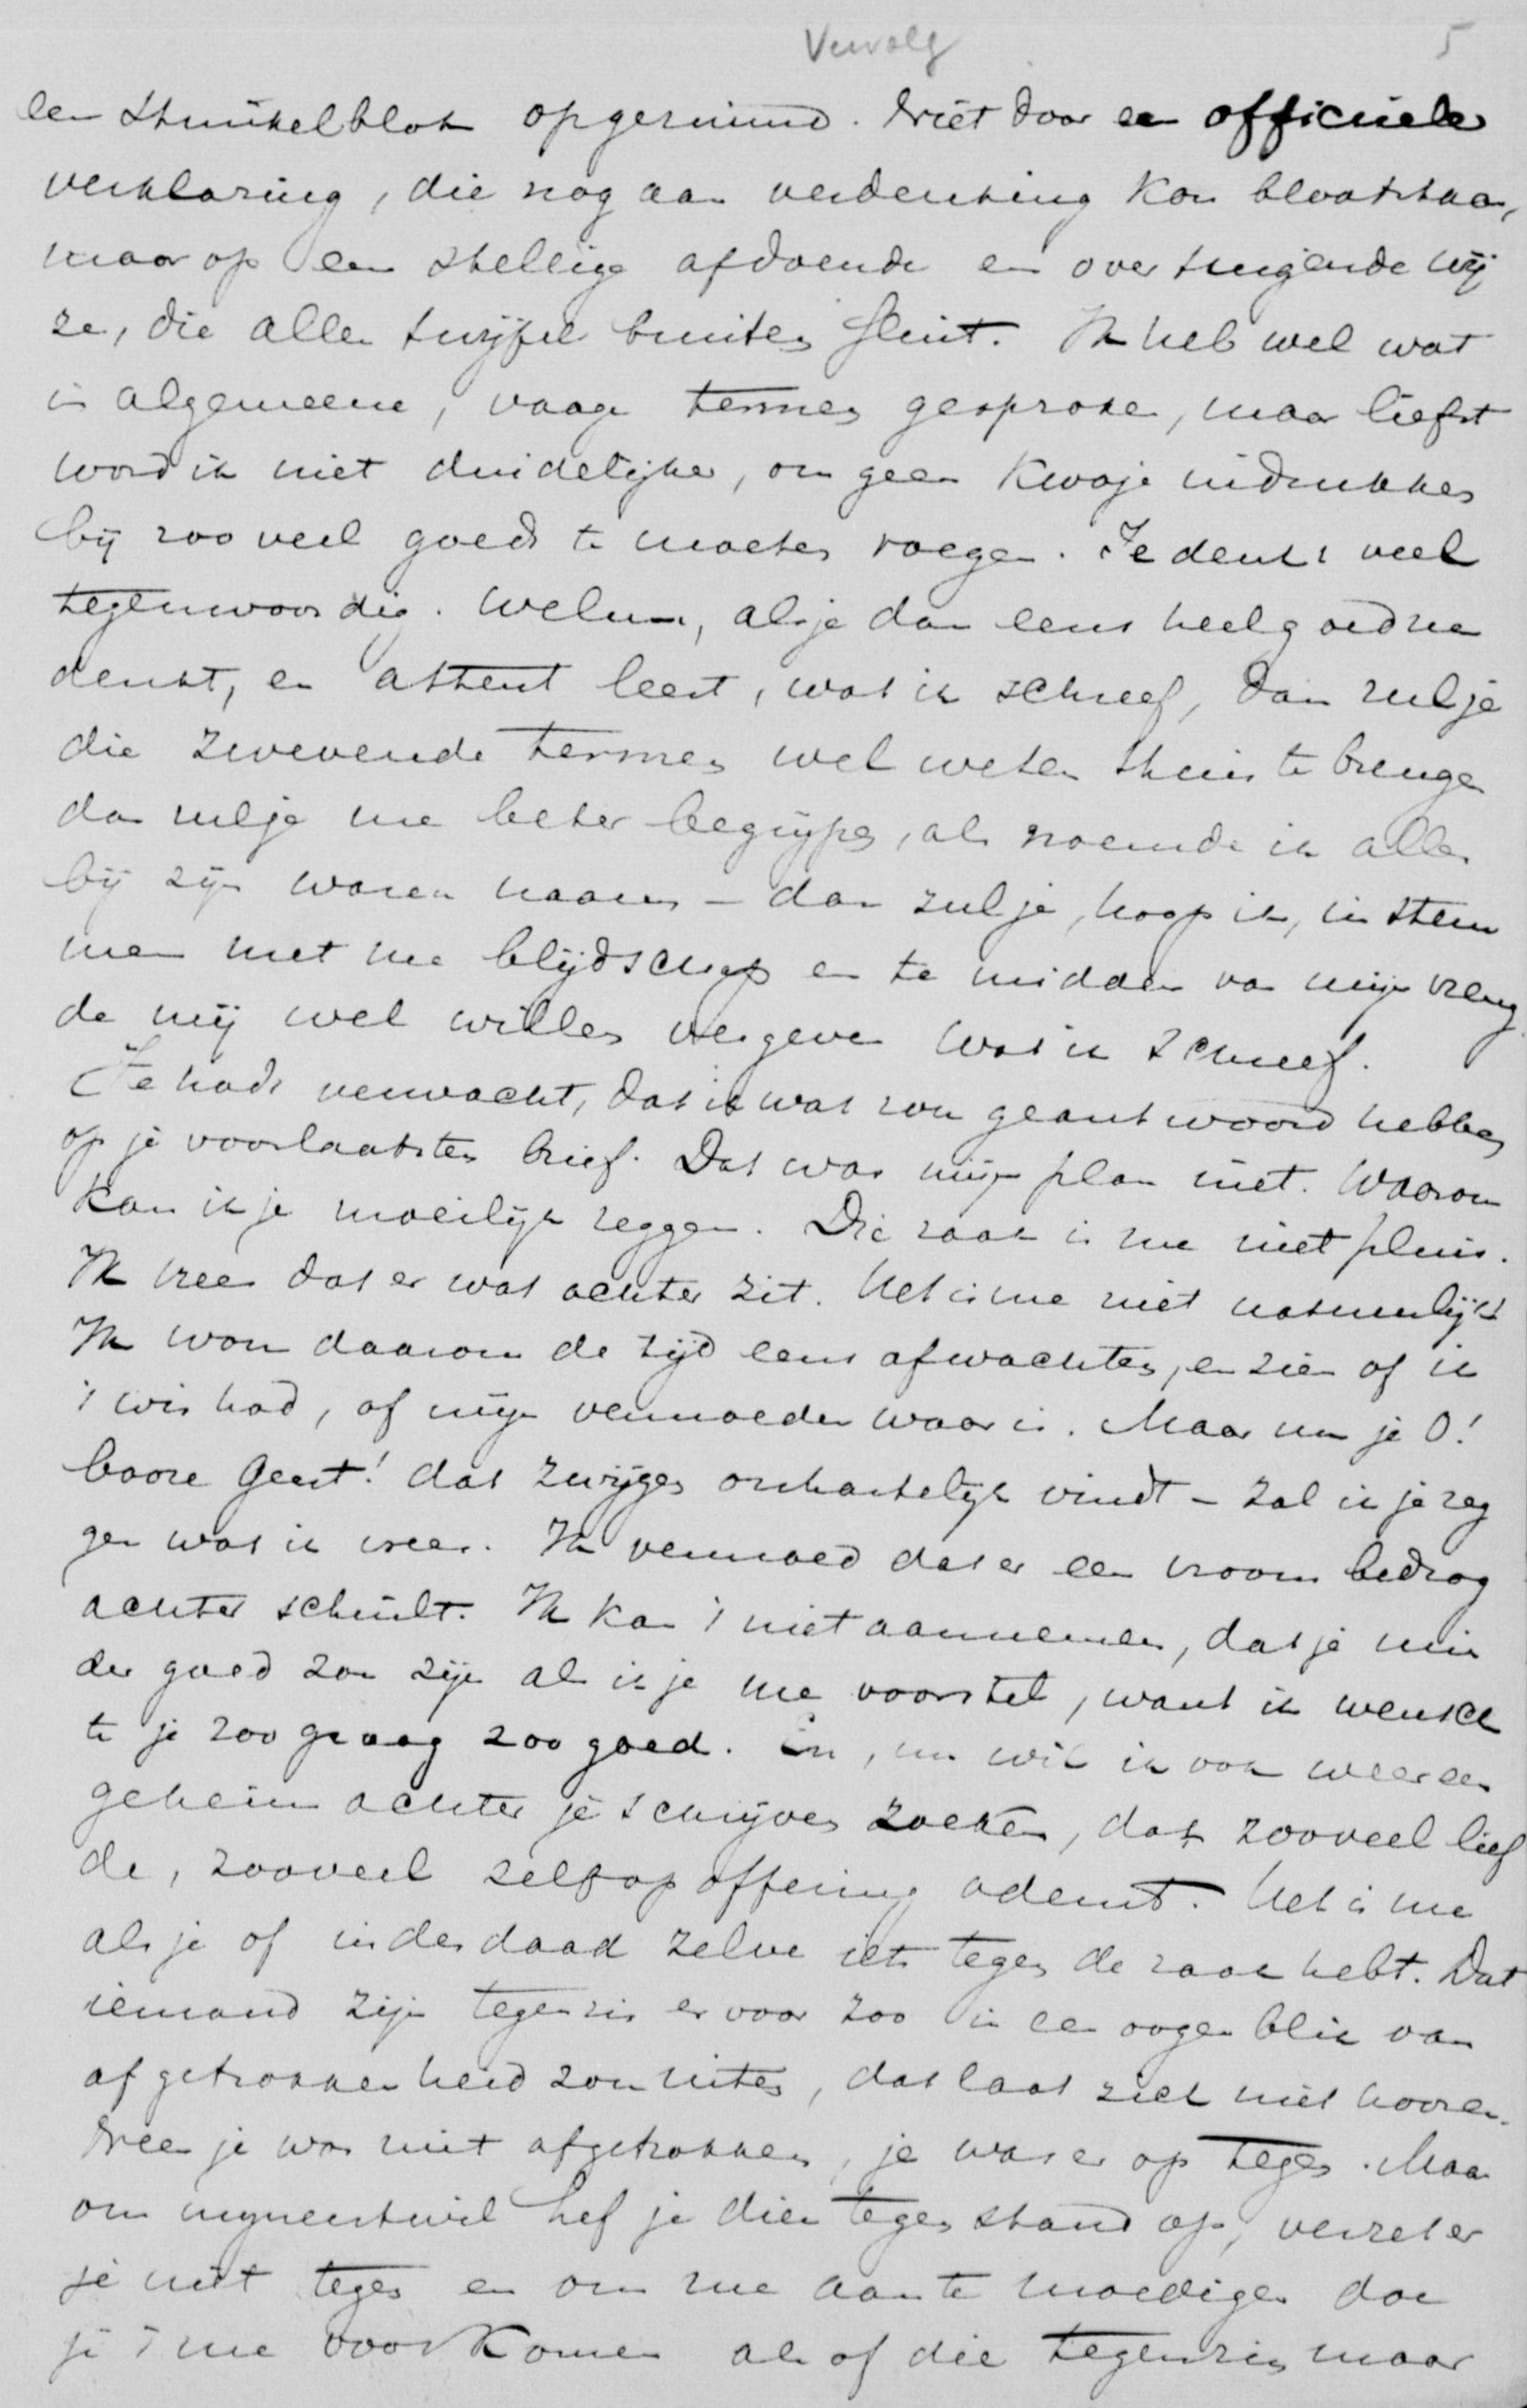 Vervolg 5
een struikelblok opgeruimd. Niet door een officieele
verklaring, die nog aan verdenking kon blootstaan,
maar op een stellige afdoende en overtuigende wij
ze, die allen twijfel buiten sluit. Ik heb wel wat
in algemeene, vage termen gesproken, maar liefst
word ik niet duidelijker, om geen kwaje indrukken
bij zoo veel goeds te moeten voegen. Je denkt veel
tegenwoordig. Welnu, als je dan eens heel goed na
denkt, en attent leest, wat ik schreef, dan zul je
die zwevende termen wel weten thuis te brengen
dan zul je me beter begrijpen, als noemde ik alles
bij zijn waren naam – dan zul je, hoop ik, in stem
men met me blijdschap en te midden van mijn vreug
de mij wel willen vergeven wat ik schreef.
Je hadt verwacht, dat ik wat zou geantwoord hebben
op je voorlaatsten brief. Dat was mijn plan niet. Waarom
kan ik je moeilijk zeggen. Die zaak is me niet pluis.
Ik vrees dat er wat achter zit. Het is me niet natuurlijk
Ik wou daarom de tijd eens afwachten, en zien of ik
't wis had, of mijn vermoeden waar is. Maar nu je O!
booze Geest! dat zwijgen onhartelijk vindt – zal ik je zeg
gen wat ik vrees. Ik vermoed dat er een vroom bedrog
achter schuilt. Ik kan 't niet aannemen, dat je min
der goed zou zijn als ik je me voorstel, want ik wensch
te je zoo graag zoo goed. En, nu wil ik ook weer een
geheim achter je schrijven zoeken, dat zooveel lief
de, zooveel zelfopoffering ademt. Het is me
als je of inderdaad zelve iets tegen de zaak hebt. Dat
iemand zijn tegenzin ervoor zoo in een oogenblik van
afgetrokkenheid zou uiten, dat laat zich niet hooren.
Neen je was niet afgetrokken, je was er op tegen. Maar
om mijnentwil hef je dien tegenstand op, verzet er
je niet tegen en om me aan te moedigen doe
je 't me voorkomen als of die tegenzin maar